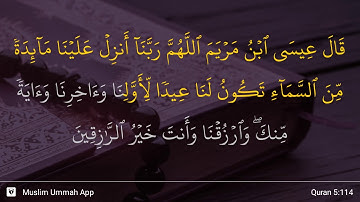 قَالَ عِيسَى ٱبْنُ مَرْيَمَ ٱللَّهُمَّ رَبَّنَآ أَنزِلْ عَلَيْنَا مَآئِدَةً
مِّنَ ٱلسَّمَآءِ تَكُونُ لَنَا عِيدًا لِّأَوَّلِنَا وَءَاخِرِنَا وَءَايَةً
مِّنكَ ۖ وَٱرْزُقْنَا وَأَنتَ خَيْرُ ٱلرَّٰزِقِينَ
Muslim Ummah App
Quran 5:114